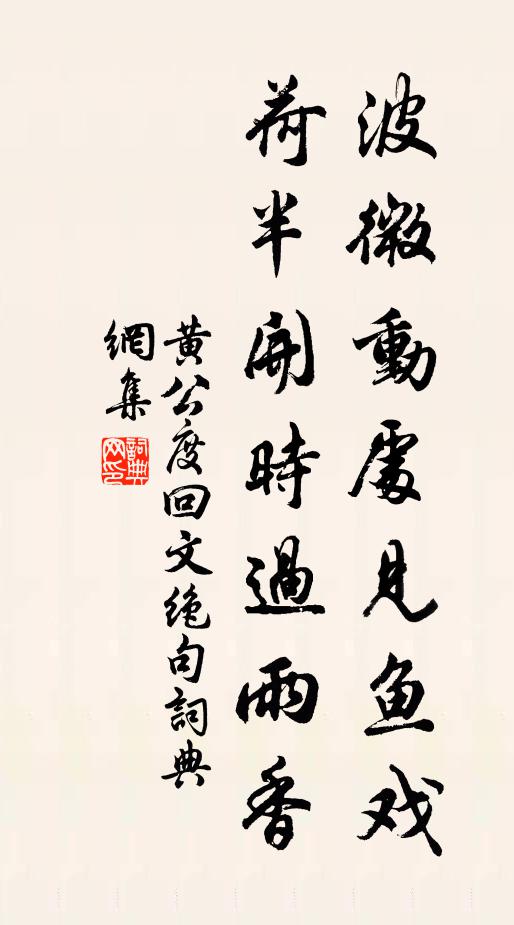 波微動處見鱼戏
荷半開時過雨香
黄公度回文绝句詞典
網集
詞典
网印